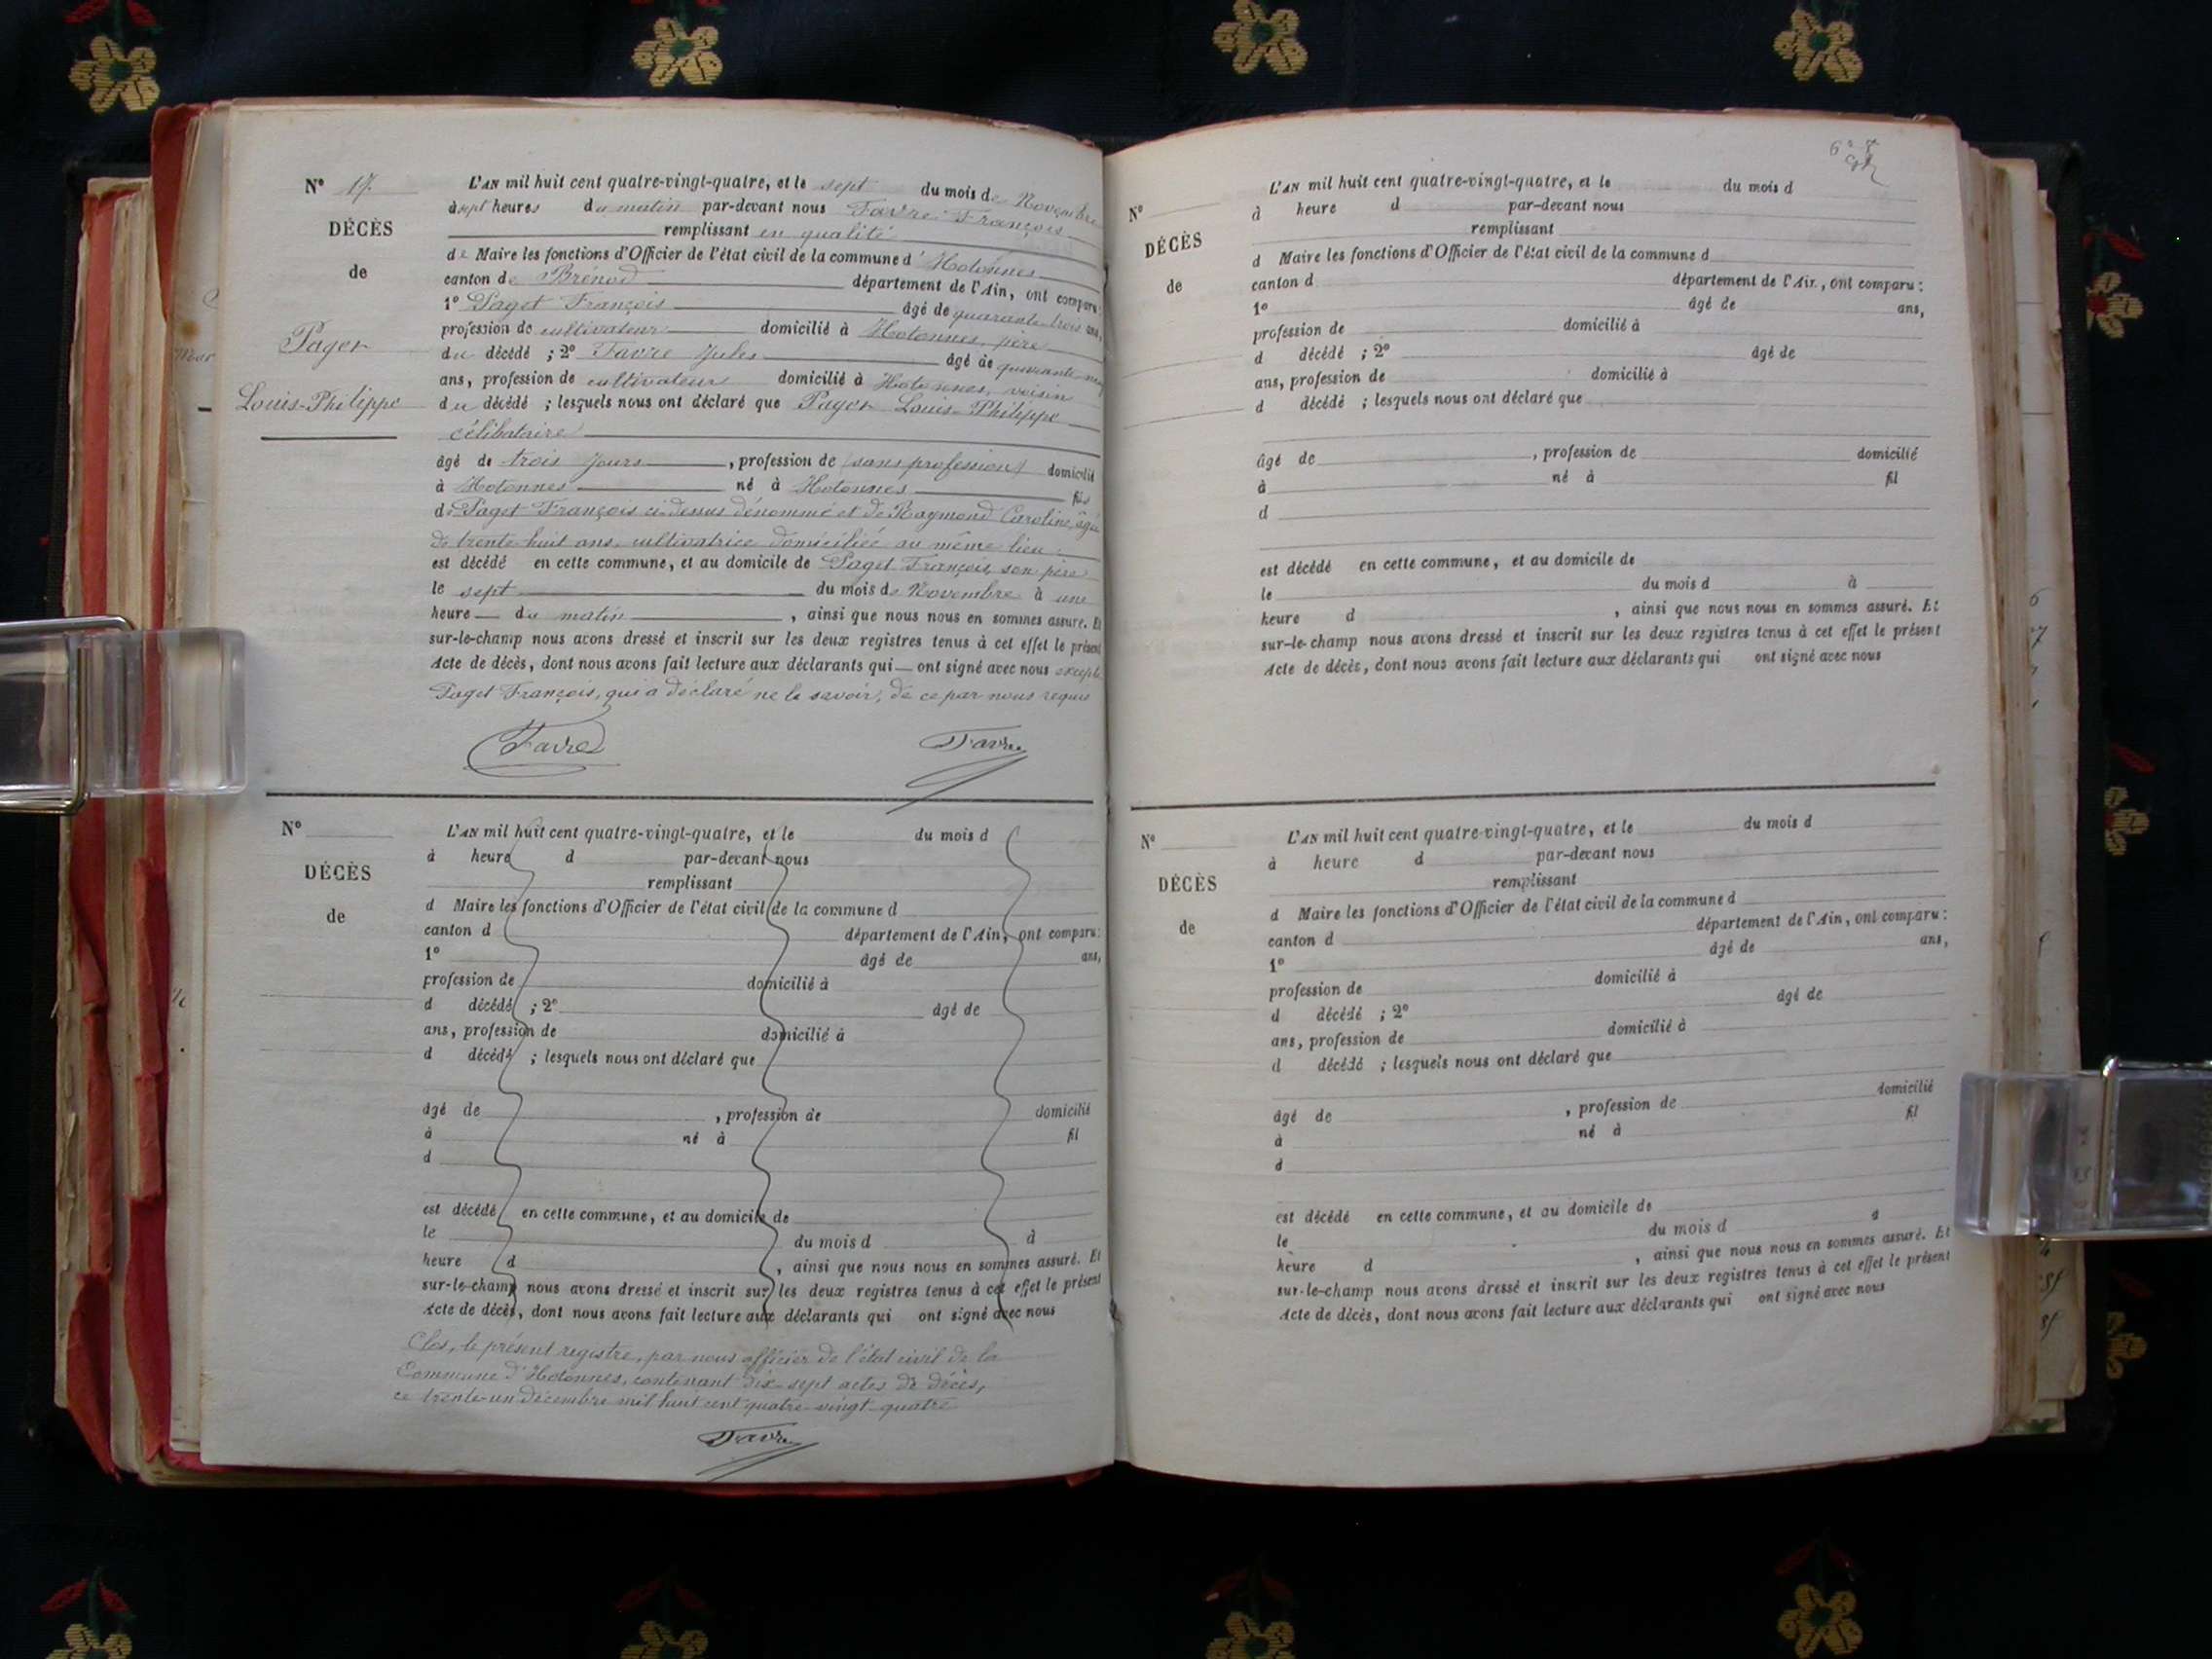 N° 17
DÉCÈS
de
Paget
Louis-Philippe
L'AN mil huit cent quatre-vingt-quatre, et le sept du mois de Novembre
à sept heures du matin par-devant nous Favre François
remplissant en qualité
de Maire les fonctions d'Officier de l'état civil de la commune d'Hotonnes
canton de Brénod département de l'Ain, ont comparu:
1° Paget François âgé de quarante-trois ans,
profession de cultivateur domicilié à Hotonnes, père
du décédé ; 2° Favre Jules âgé de quarante-neuf
ans, profession de cultivateur domicilié à Hotonnes, voisin
du décédé ; lesquels nous ont déclaré que Paget Louis-Philippe
célibataire
âgé de trois jours , profession de (sans profession) domicilié
à Hotonnes né à Hotonnes fils
de Paget François ci-dessus dénommé et de Raymond Caroline, âgée
de trente huit ans, cultivatrice domiciliée au même lieu
est décédé en cette commune, et au domicile de Paget François, son père
le sept du mois de Novembre à une
heure du matin , ainsi que nous nous en sommes assuré. Et
sur-le-champ nous avons dressé et inscrit sur les deux registres tenus à cet effet le présent
Acte de décès, dont nous avons fait lecture aux déclarants qui ont signé avec nous excepté
Paget François, qui a déclaré ne le savoir, de ce par nous requis
Favre Favre
N°
DÉCÈS
de
L'AN mil huit cent quatre-vingt-quatre, et le du mois d
à heure d par-devant nous
remplissant
d Maire les fonctions d'Officier de l'état civil de la commune d
canton d département de l'Ain, ont comparu:
1° âgé de ans,
profession de domicilié à
d décédé ; 2° âgé de
ans, profession de domicilié à
d décédé ; lesquels nous ont déclaré que
âgé de , profession de domicilié
à né à fil
d
est décédé en cette commune, et au domicile de
le du mois d à
heure d , ainsi que nous nous en sommes assuré. Et
sur-le-champ nous avons dressé et inscrit sur les deux registres tenus à cet effet le présent
Acte de décès, dont nous avons fait lecture aux déclarants qui ont signé avec nous
Clos, le présent registre, par nous officier de l'état civil de la
Commune d'Hotonnes, contenant dix-sept actes de décès,
ce trente-un décembre mil huit cent quatre-vingt-quatre
Favre
N°
DÉCÈS
de
L'AN mil huit cent quatre-vingt-quatre, et le du mois d
à heure d par-devant nous
remplissant
d Maire les fonctions d'Officier de l'état civil de la commune d
canton d département de l'Ain, ont comparu:
1° âgé de ans,
profession de domicilié à
d décédé ; 2° âgé de
ans, profession de domicilié à
d décédé ; lesquels nous ont déclaré que
âgé de , profession de domicilié
à né à fil
d
est décédé en cette commune, et au domicile de
le du mois d à
heure d , ainsi que nous nous en sommes assuré. Et
sur-le-champ nous avons dressé et inscrit sur les deux registres tenus à cet effet le présent
Acte de décès, dont nous avons fait lecture aux déclarants qui ont signé avec nous
N°
DÉCÈS
de
L'AN mil huit cent quatre-vingt-quatre, et le du mois d
à heure d par-devant nous
remplissant
d Maire les fonctions d'Officier de l'état civil de la commune d
canton d département de l'Ain, ont comparu:
1° âgé de ans,
profession de domicilié à
d décédé ; 2° âgé de
ans, profession de domicilié à
d décédé ; lesquels nous ont déclaré que
âgé de , profession de domicilié
à né à fil
d
est décédé en cette commune, et au domicile de
le du mois d à
heure d , ainsi que nous nous en sommes assuré. Et
sur-le-champ nous avons dressé et inscrit sur les deux registres tenus à cet effet le présent
Acte de décès, dont nous avons fait lecture aux déclarants qui ont signé avec nous